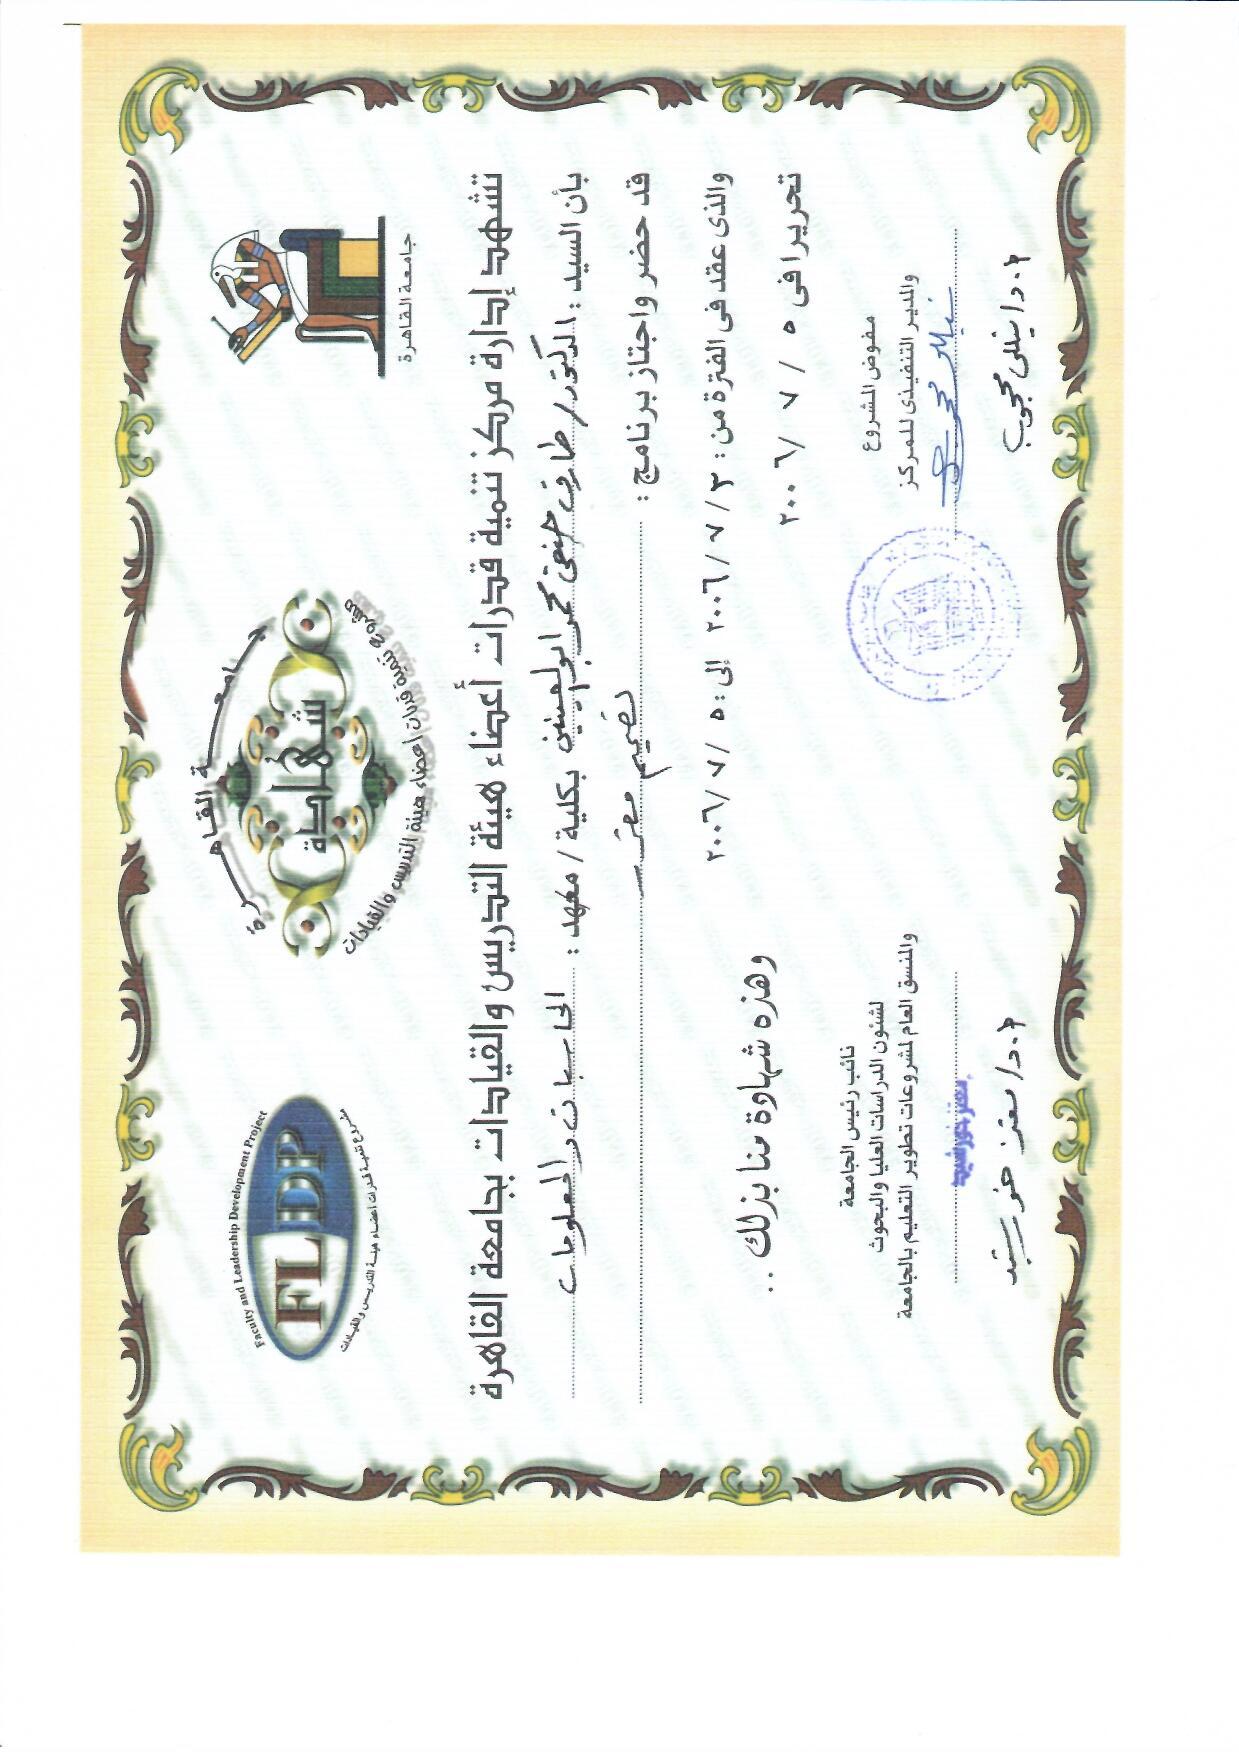 جامعة القاهرة
جامعة القاهرة
شهادة
مشروع تنمية قدرات أعضاء هيئة التدريس والقيادات
Faculty and Leadership Development Project
FLDP
مشروع تنمية قدرات أعضاء هيئة التدريس والقيادات
تشهد إدارة مركز تنمية قدرات أعضاء هيئة التدريس والقيادات بجامعة القاهرة
بأن السيد : الدكتور / طارق حنفى محمد ابوالعينين بكلية / معهد : الحاسبات والمعلومات
قد حضر واجتاز برنامج : تصميم مقرر
والذى عقد فى الفترة من : ٣ / ٧ / ٢٠٠٦ إلى : ٥ / ٧ / ٢٠٠٦
تحريرا فى ٥ / ٧ / ٢٠٠٦
وهذه شهادة منا بذلك ..
مفوض المشروع
والمدير التنفيذى للمركز
أ.د/ ليلى محجوب
نائب رئيس الجامعة
لشئون الدراسات العليا والبحوث
والمنسق العام لمشروعات تطوير التعليم بالجامعة
معتز خورشيد
أ.د/ معتز خورشيد